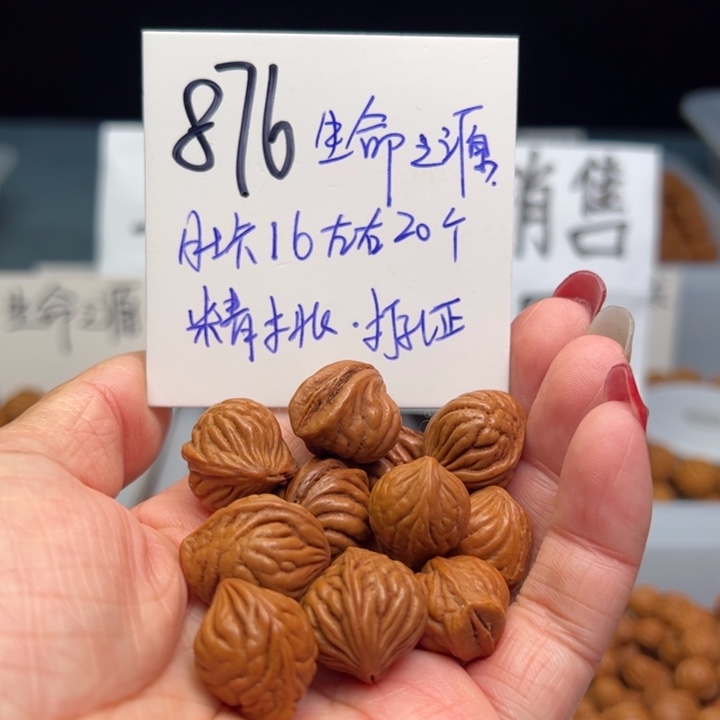 876 生命之源
肚卡16左右20个
精
生命之源
销售